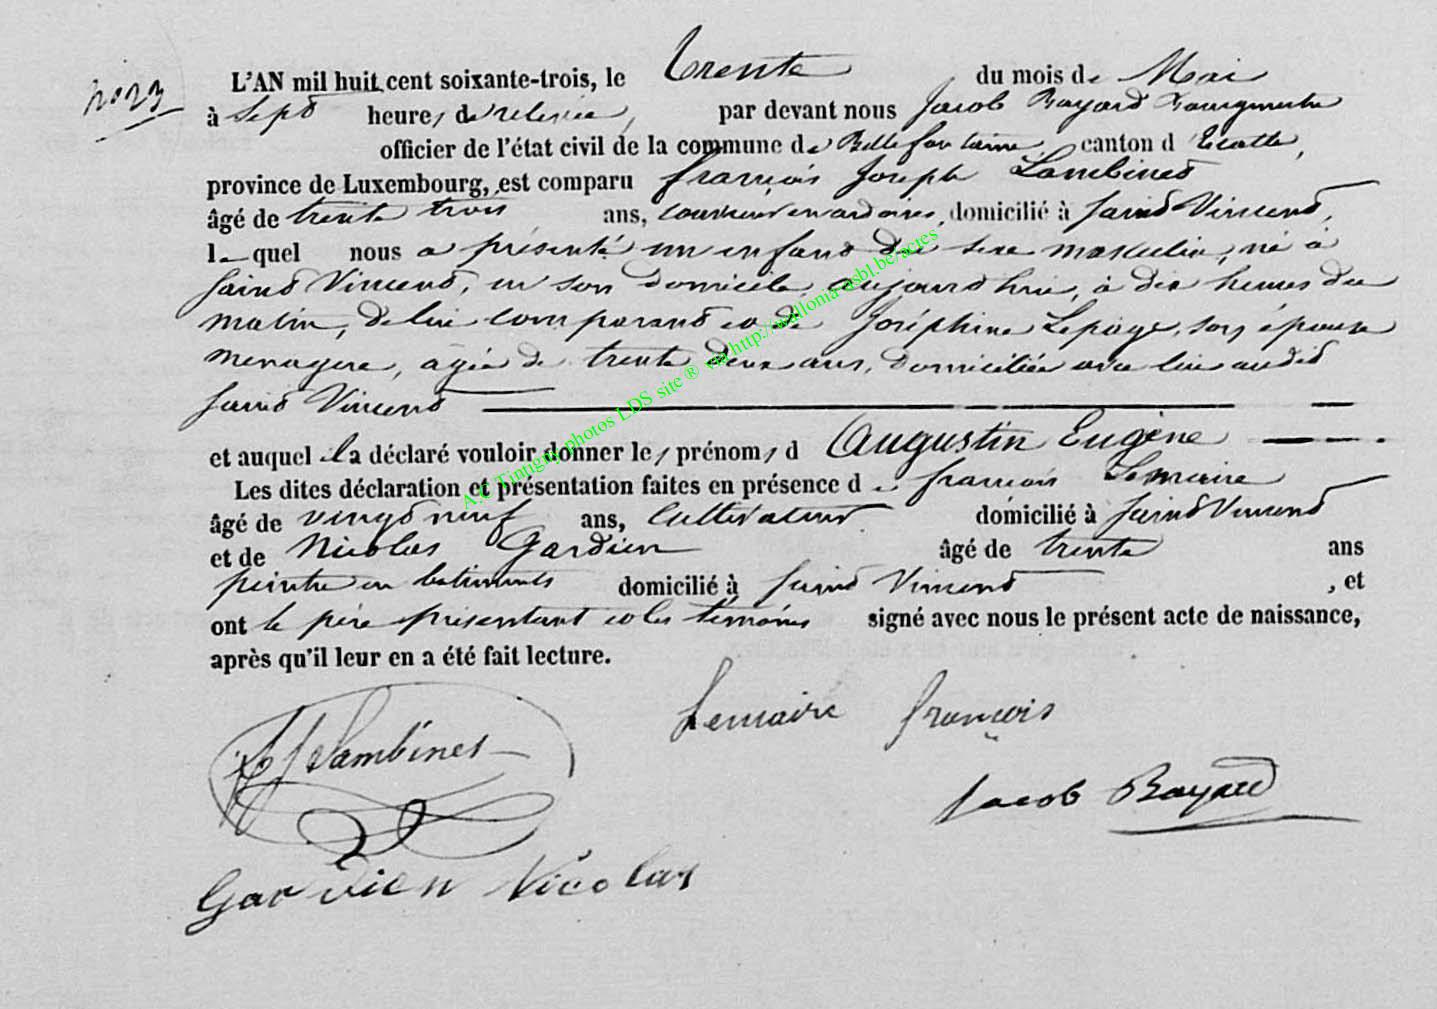 N° 23
L'AN mil huit cent soixante-trois, le trente du mois de Mai
à sept heures de relevée, par devant nous Jacob Bayard Bourgmestre
officier de l'état civil de la commune de Bellefontaine, canton d'Etalle,
province de Luxembourg, est comparu françois Joseph Lambinet
âgé de trente trois ans, couvreur en ardoises, domicilié à Saint Vincent,
lequel nous a présenté un enfant du sexe masculin, né à
Saint Vincent, en son domicile, aujourd'hui, à dix heures du
matin, de lui comparant et de Joséphine Lepage, son épouse
ménagère, âgée de trente deux ans, domiciliée avec lui audit
Saint Vincent
et auquel il a déclaré vouloir donner les prénoms d Augustin Eugène
Les dites déclaration et présentation faites en présence de françois Lemaire
âgé de vingt neuf ans, cultivateur domicilié à Saint Vincent
et de Nicolas Gardien âgé de trente ans
peintre en batiments domicilié à Saint Vincent , et
ont le père présentant et les témoins signé avec nous le présent acte de naissance,
après qu'il leur en a été fait lecture.
Lambinet
Lemaire françois
Jacob Bayard
Gardien Nicolas
A.C Tintigny photos LDS site ® via http://wallonia-asbl.be/actes